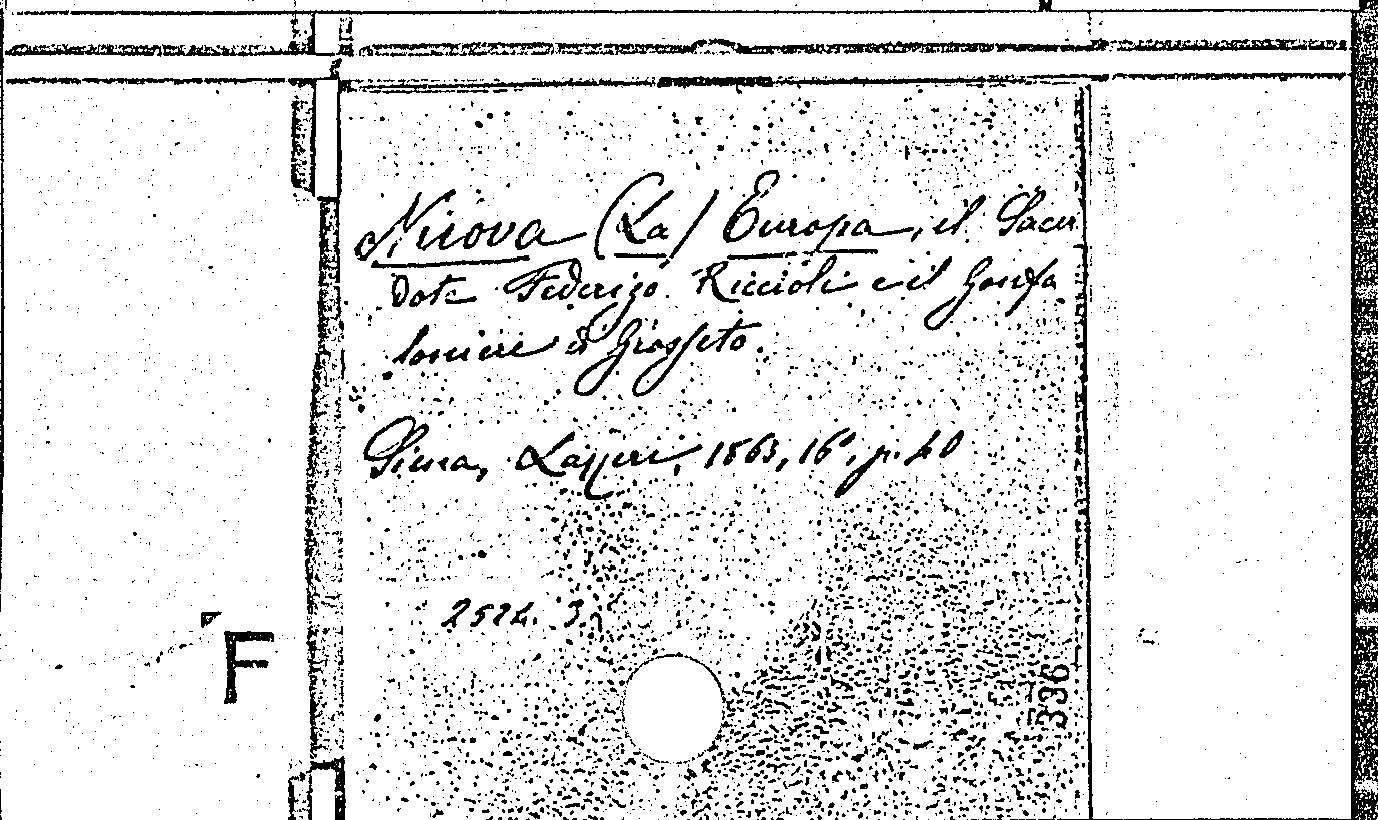 Nuova (La) Europa, il Sacer
dote Federigo Riccioli e il Gonfa
loniere di Grosseto.
Siena, Lazzeri, 1863, 16°, p. 40
2524. 3.
F
336